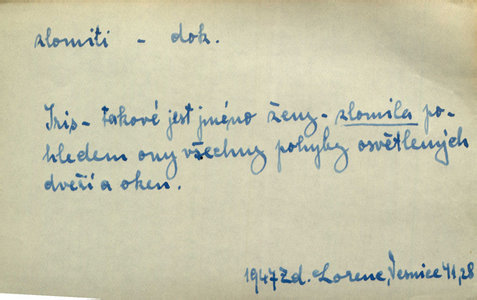 zlomiti - dok.
Iris - takové jest jméno ženy - zlomila po-
hledem ony všechny pohyby osvětlených
dveří a oken.
1947 Zd. Lorenc, Vesnice 41,28